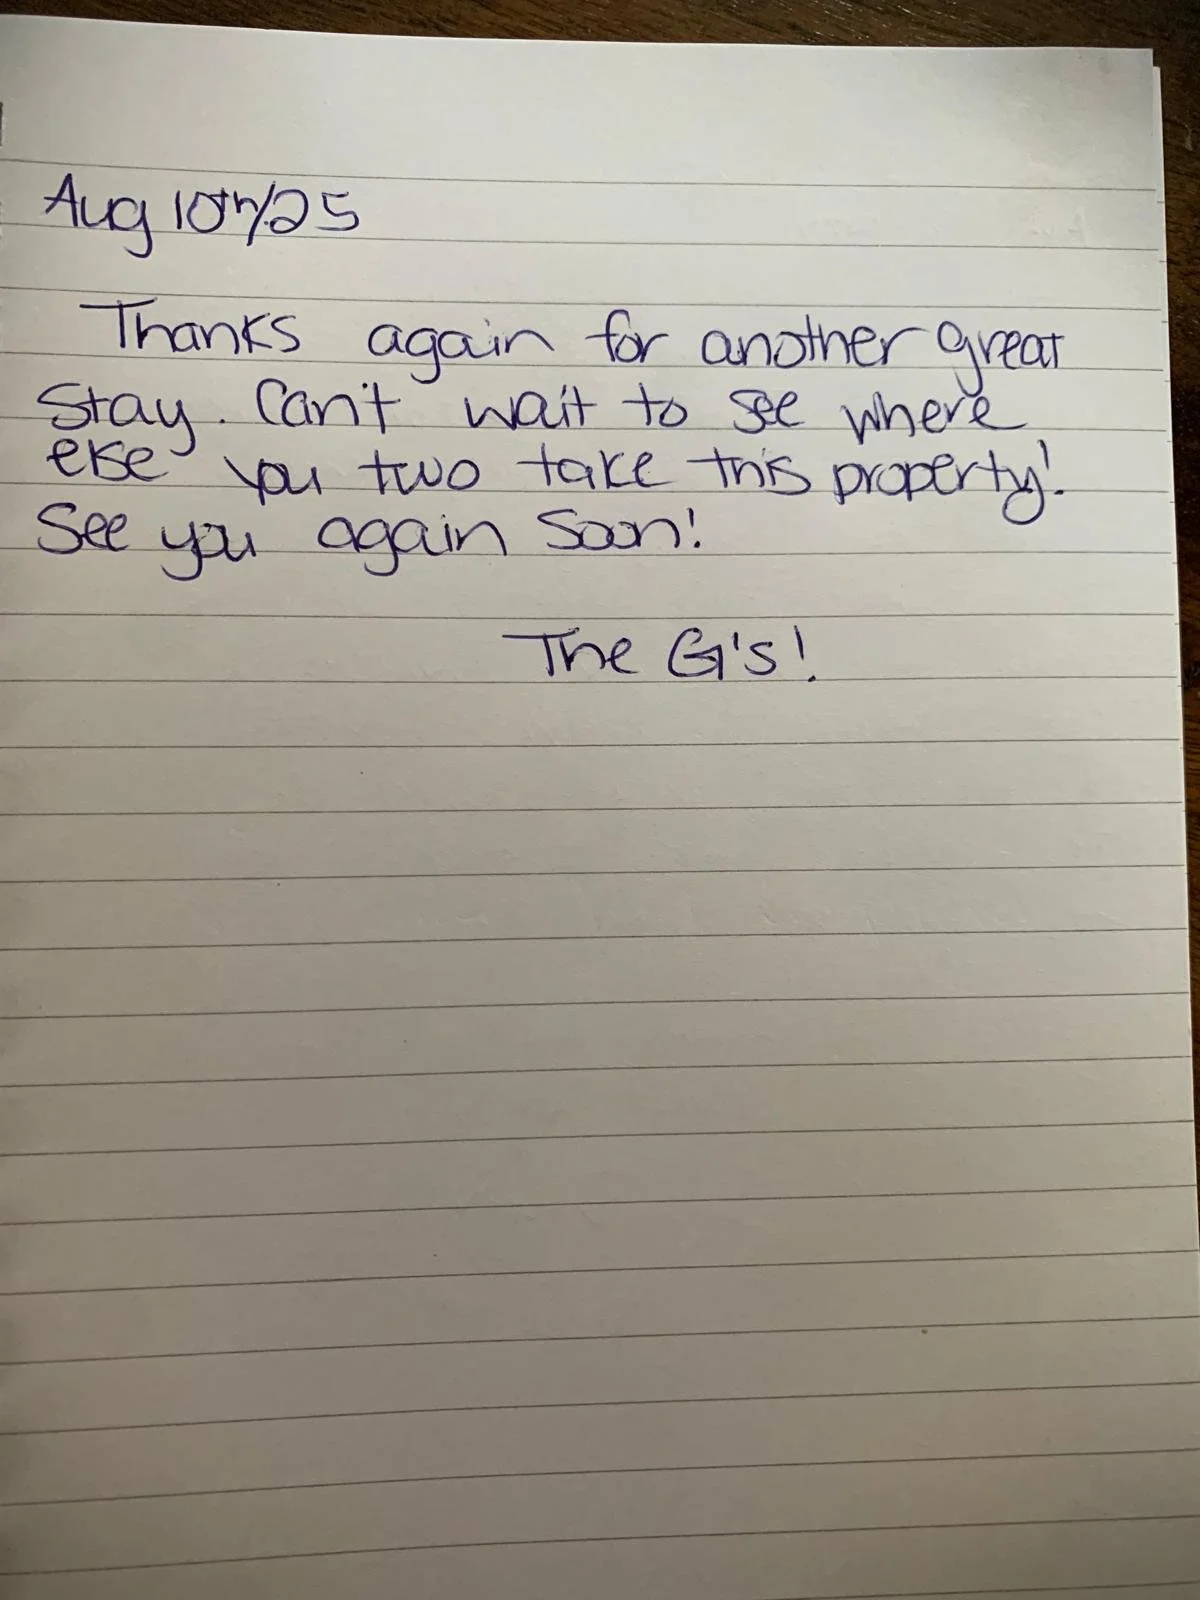 Aug 10th/25
Thanks again for another great
Stay. Can't wait to see where
else you two take this property!
See you again Soon!
The G's!